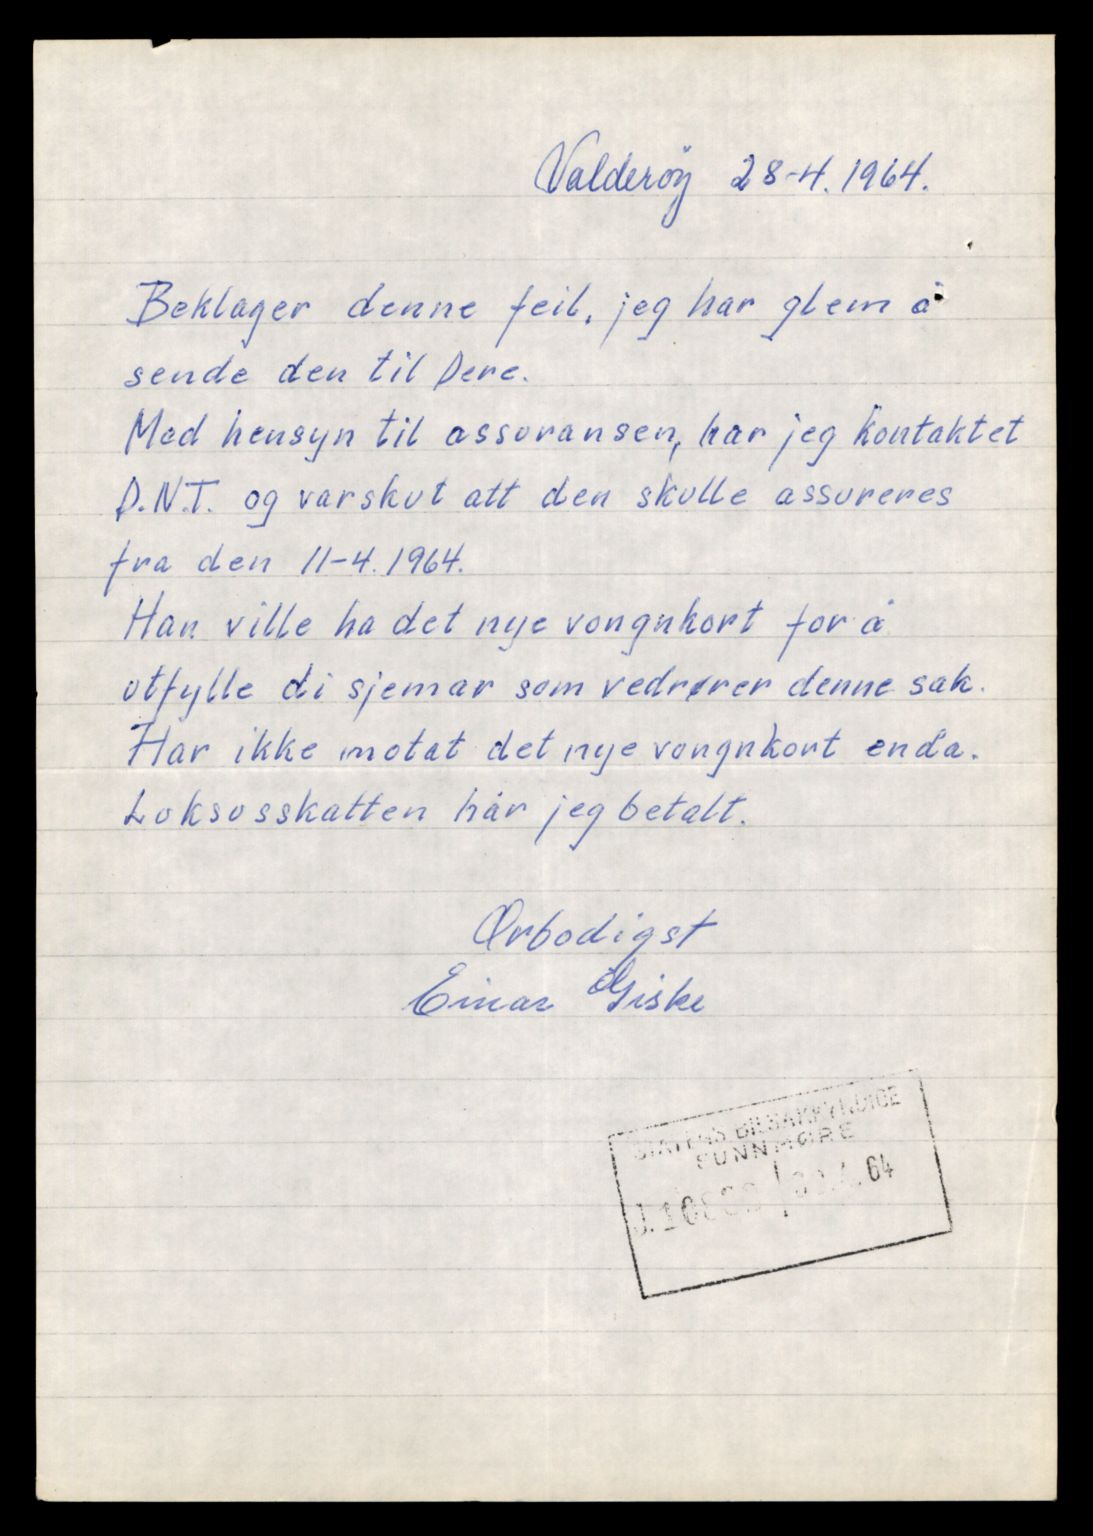 Valderöy 28-4.1964.
Beklager denne feil, jeg har glem å
sende den til Dere.
Med hensyn til assuransen, har jeg kontaktet
D.N.T. og varskut att den skulle assureres
fra den 11-4.1964.
Han ville ha det nye vongnkort for å
utfylle di sjemar som vedrører denne sak.
Har ikke motat det nye vongnkort enda.
Luksusskatten har jeg betalt.
Ørbodigst
Einar Giske
STATENS BILSAKKYNDIGE
SUNNMØRE
64